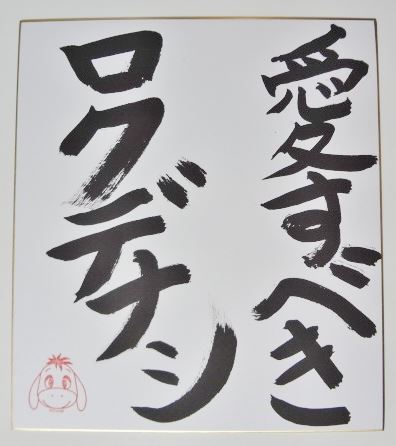 愛すべき
ロクデナシ